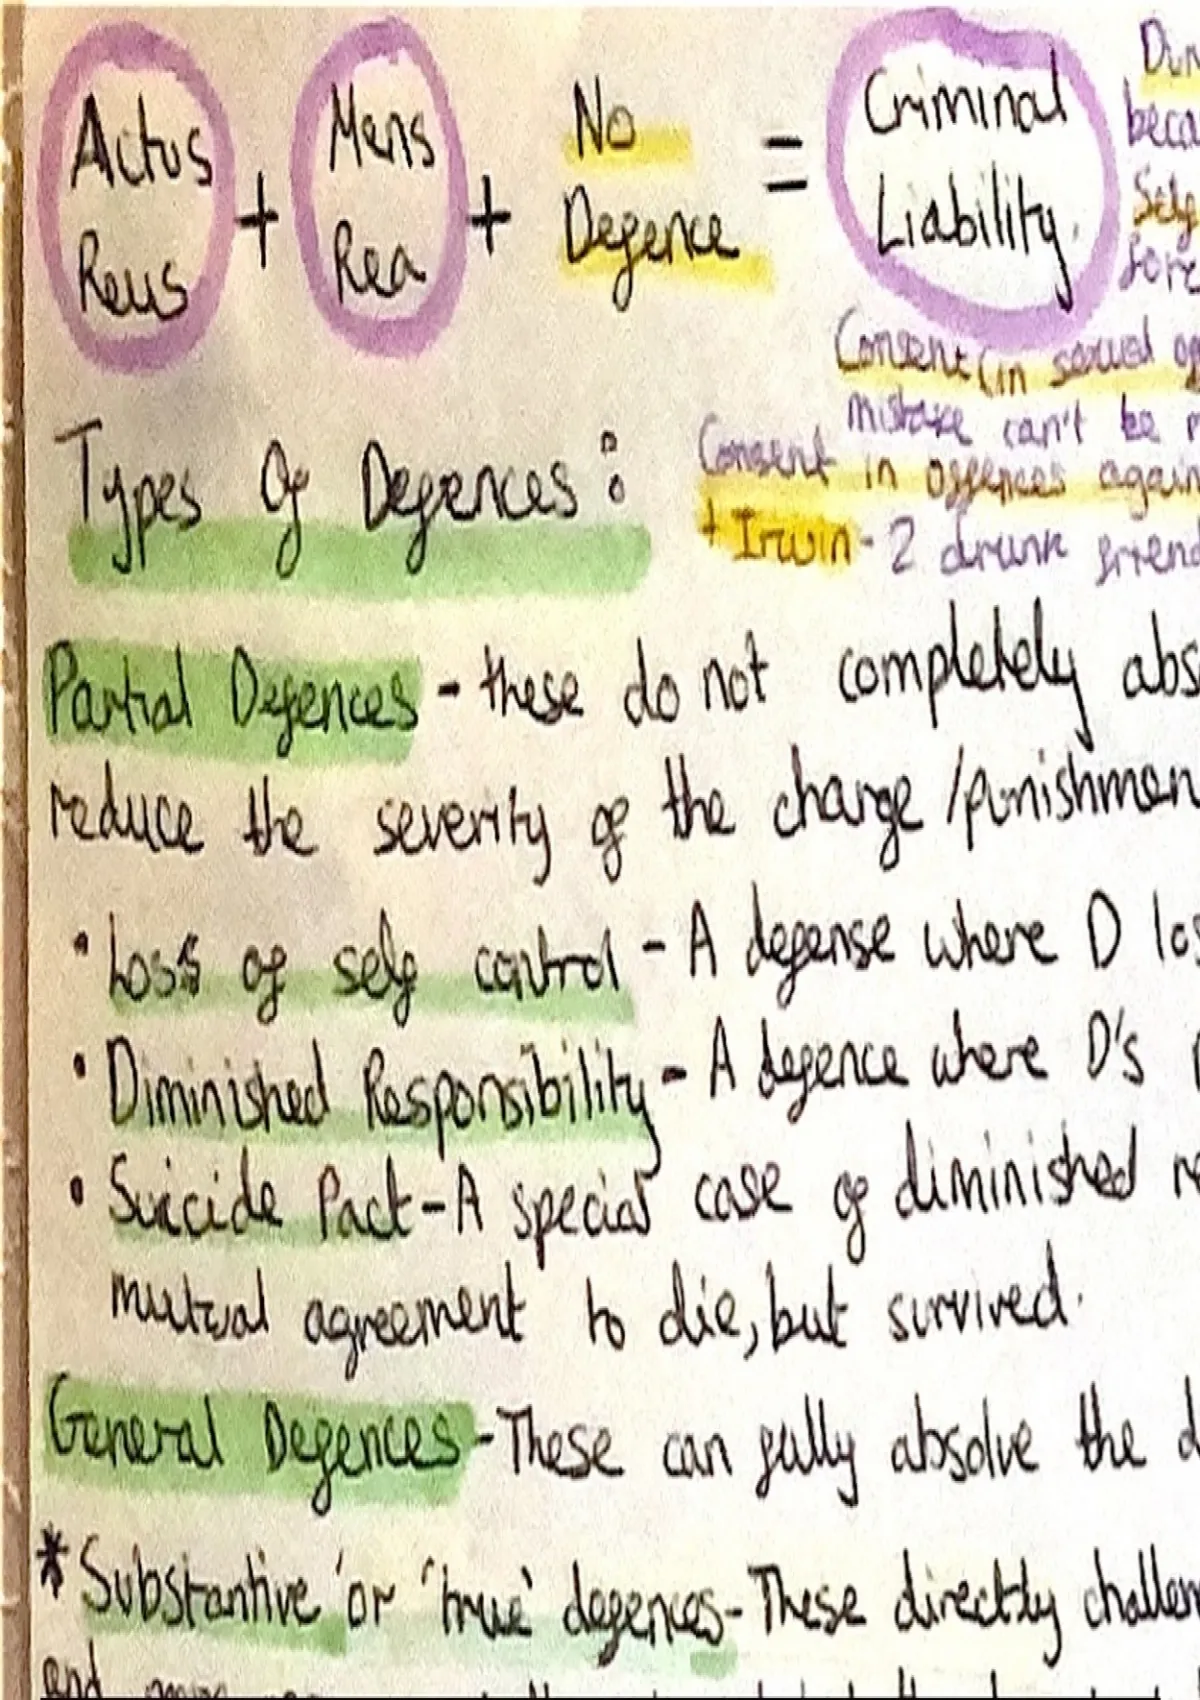 Actus Reus + Mens Rea + No Defence = Criminal Liability.
beca
Self
fore
Consent (in sexual of
mistake can't be
Consent in offences again
+ Irwin - 2 drunk friend
Types Of Defences:
Partial Defences - these do not completely abs
reduce the severity of the charge/punishmen
• Loss of self control - A defense where D los
• Diminished Responsibility - A defence where D's
• Suicide Pact - A special case of diminished re
mutual agreement to die, but survived.
General Defences - These can fully absolve the d
* Substantive 'or 'true' defences - These directly challen
and